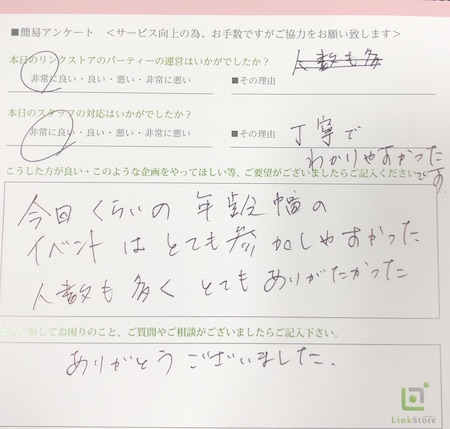 ■簡易アンケート ＜サービス向上の為、お手数ですがご協力をお願い致します＞
本日のリンクストアのパーティーの運営はいかがでしたか？
人数も多
非常に良い・良い・悪い・非常に悪い ■その理由
本日のスタッフの対応はいかがでしたか？
非常に良い・良い・悪い・非常に悪い ■その理由 丁寧で
わかりやすかった
です。
こうした方が良い・このような企画をやってほしい等、ご要望がございましたらご記入ください
今回くらいの年齢幅の
イベントはとても参加しやすかった
人数も多くとてもありがたかった
してお困りのこと、ご質問やご相談がございましたらご記入下さい。
ありがとうございました。
LinkStore